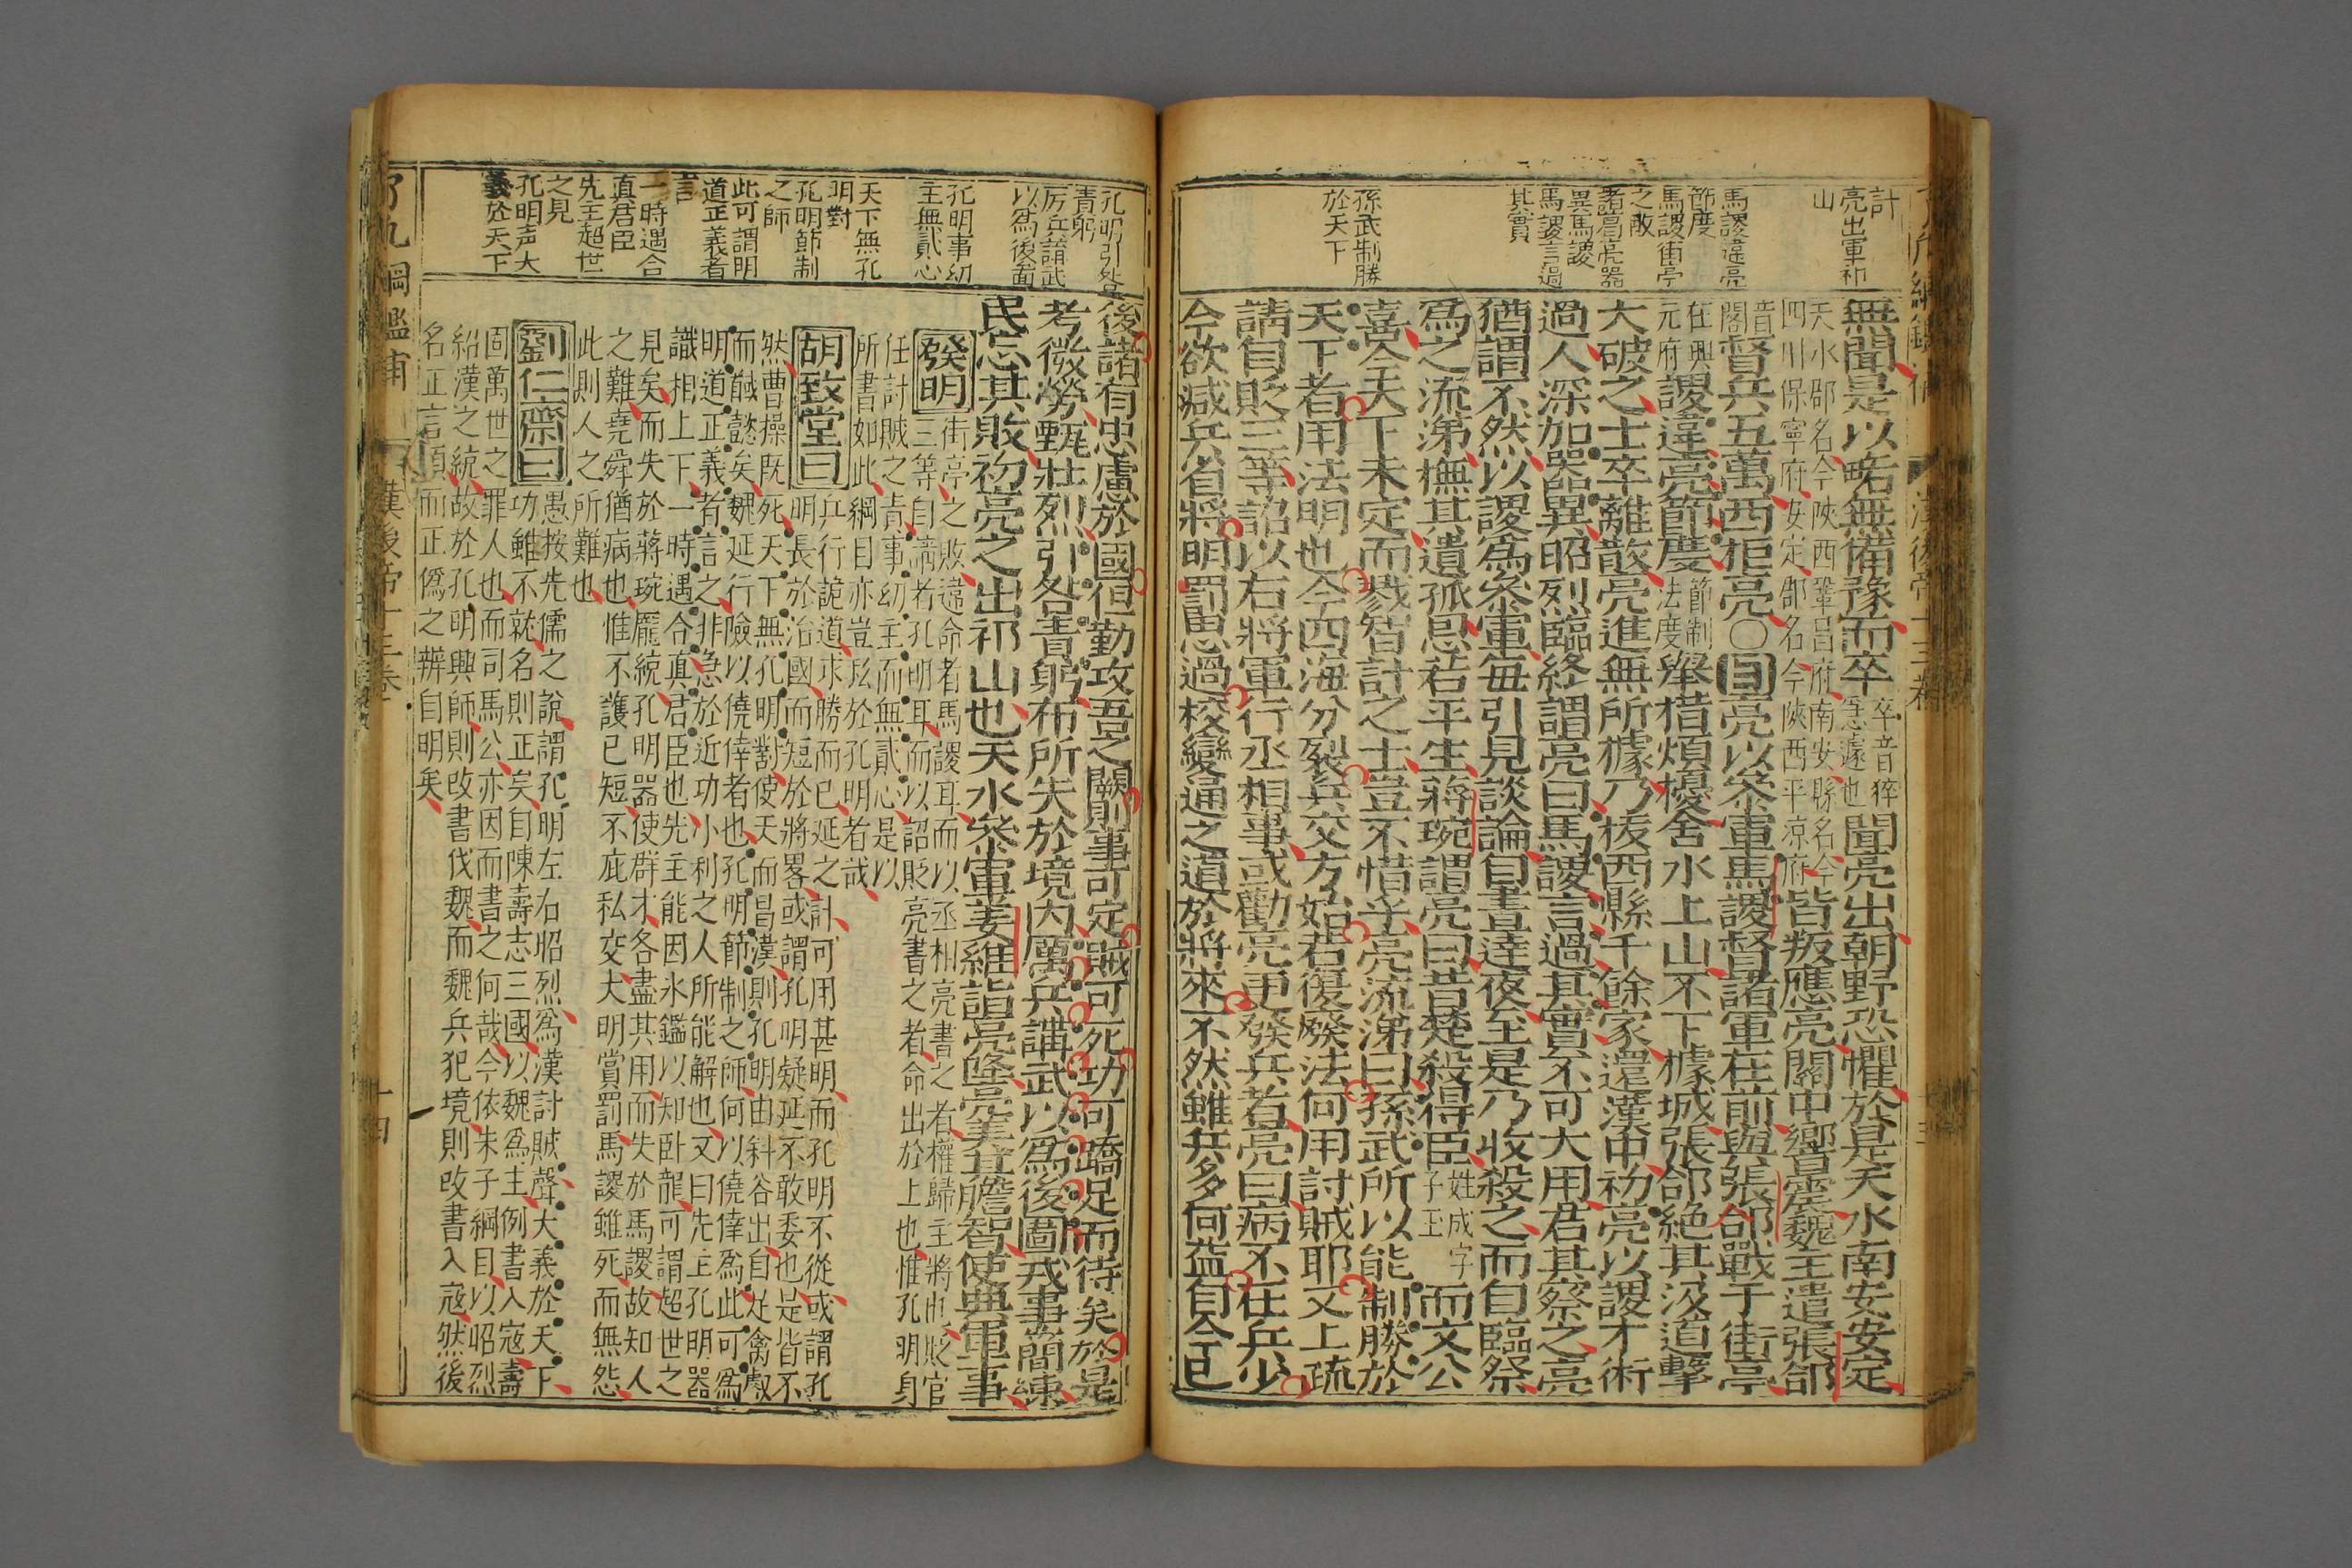 計
亮出軍祁
山
馬謖違亮
節度
馬謖街亭
之敗
諸葛亮器
異馬謖
馬謖言過
其實
孫武制勝
於天下
無聞是以略無備豫而卒
卒音猝
急遽也
聞亮出朝野恐懼於是天水南安安定
天水郡名今陝西鞏昌府南安縣名今
四川保寧府安定郡名今陝西平涼府
皆叛應亮關中嚮震魏主遣張郃
音
閣
督兵五萬西拒亮〇目亮以叅軍馬謖督諸軍在前與張郃戰于街亭
在興
元府
謖違亮節度
節制
法度
舉措煩擾舍水上山不下據城張郃絶其汲道擊
大破之士卒離散亮進無所據乃拔西縣千餘家還漢中初亮以謖才術
過人深加器異昭烈臨終謂亮曰馬謖言過其實不可大用君其察之亮
猶謂不然以謖爲叅軍每引見談論自晝達夜至是乃收殺之而自臨祭
爲之流涕撫其遺孤恩若平生蔣琬謂亮曰昔楚殺得臣
姓成字
子玉
而文公
喜今天下未定而戮智計之士豈不惜乎亮流涕曰孫武所以能制勝於
天下者用法明也今四海分裂兵交方始若復廢法何用討賊耶又上疏
請自貶三等詔以右將軍行丞相事或勸亮更發兵者亮曰病不在兵少
今欲减兵省將明罰思過校變通之道於將來不然雖兵多何益自今已
孔明引咎
責躬
厉兵講武
以爲後圖
孔明事幼
主無貳心
天下無孔
明對
孔明節制
之師
此可謂明
道正義者
言
一時遇合
真君臣
先主超世
之見
孔明声大
義於天下
後諸有忠慮於國但勤攻吾之闕則事可定賊可死功可蹻足而待矣於是
考微勞甄壯烈引咎責躬布所失於境内厲兵講武以爲後圖戎事簡練
民忘其敗初亮之出祁山也天水叅軍姜維詣亮降亮美其膽智使典軍事
發明
街亭之敗違命者馬謖耳而以丞相亮書之者權歸主將也貶官
三等自謫者孔明耳而以詔貶亮書之者命出於上也惟孔明身
任計賊之責事幼主而無貳心是以
所書如此綱目亦豈私於孔明者哉
胡致堂曰
兵行詭道求勝而已延之計可用甚明而孔明不從或謂孔
明長於治國而短於將畧或謂孔明疑延不敢委也是皆不
然曹操既死天下無孔明對使天而昌漢則孔明由斜谷出自足禽叡
而馘懿矣魏延行險以僥倖者也孔明節制之師何以僥倖爲此可爲
明道正義者言之非急於近功小利之人所能解也文曰先主孔明器
識相上下一時遇合真君臣也先主能因氷鑑以知卧龍可謂超世之
見矣而失於蔣琬龐統孔明器使群才各盡其用而失於馬謖故知人
之難堯舜猶病也惟不護已短不庇私交大明賞罰馬謖雖死而無怨
此則人之所難也
劉仁齋曰
愚按先儒之說謂孔明左右昭烈爲漢討賊聲大義於天下
功雖不就名則正矣自陳壽志三國以魏爲主例書入寇壽
固萬世之罪人也而司馬公亦因而書之何哉今依朱子綱目以昭烈
紹漢之統故於孔明興師則改書伐魏而魏兵犯境則改書入寇然後
名正言順而正僞之辨自明矣
漢後帝十三卷
十四